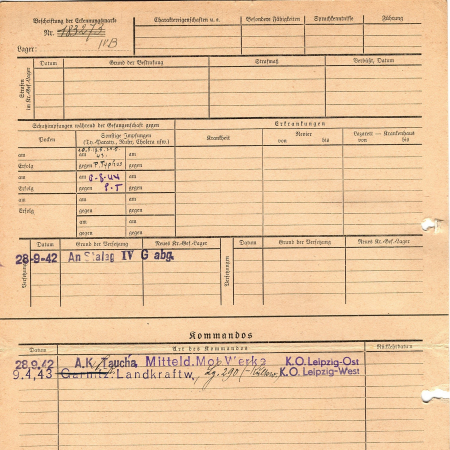 Beschriftung der Erkennungsmarke
Nr. 183273
IVB
Lager:
Charaktereigenschaften u. s.
Besondere Fähigkeiten
Sprachkenntnisse
Führung
Strafen im Kr.-Gef.-Lager
Datum
Grund der Bestrafung
Strafmaß
Verbüßt, Datum
Schutzimpfungen während der Gefangenschaft gegen
Erkrankungen
Pocken
Sonstige Impfungen
(Ty.-Paraty., Ruhr, Cholera usw.)
Krankheit
Revier
von bis
Lazarett — Krankenhaus
von bis
am am am
Erfolg gegen P. Typhus gegen
am am 8-8-44 am
Erfolg gegen P-T gegen
am am am
Erfolg gegen gegen
am am
gegen gegen
Versetzungen
Datum
Grund der Versetzung
Neues Kr.-Gef.-Lager
Versetzungen
Datum
Grund der Versetzung
Neues Kr.-Gef.-Lager
28-9-42 An Stalag IV G abg.
Kommandos
Datum
Art des Kommandos
Rückkehrdatum
28.9.42 A.K. Taucha, Mitteld. Mot. Werke K.O. Leipzig-Ost
9.4.43 Landkraftw., Lg. 290 K.O. Leipzig-West